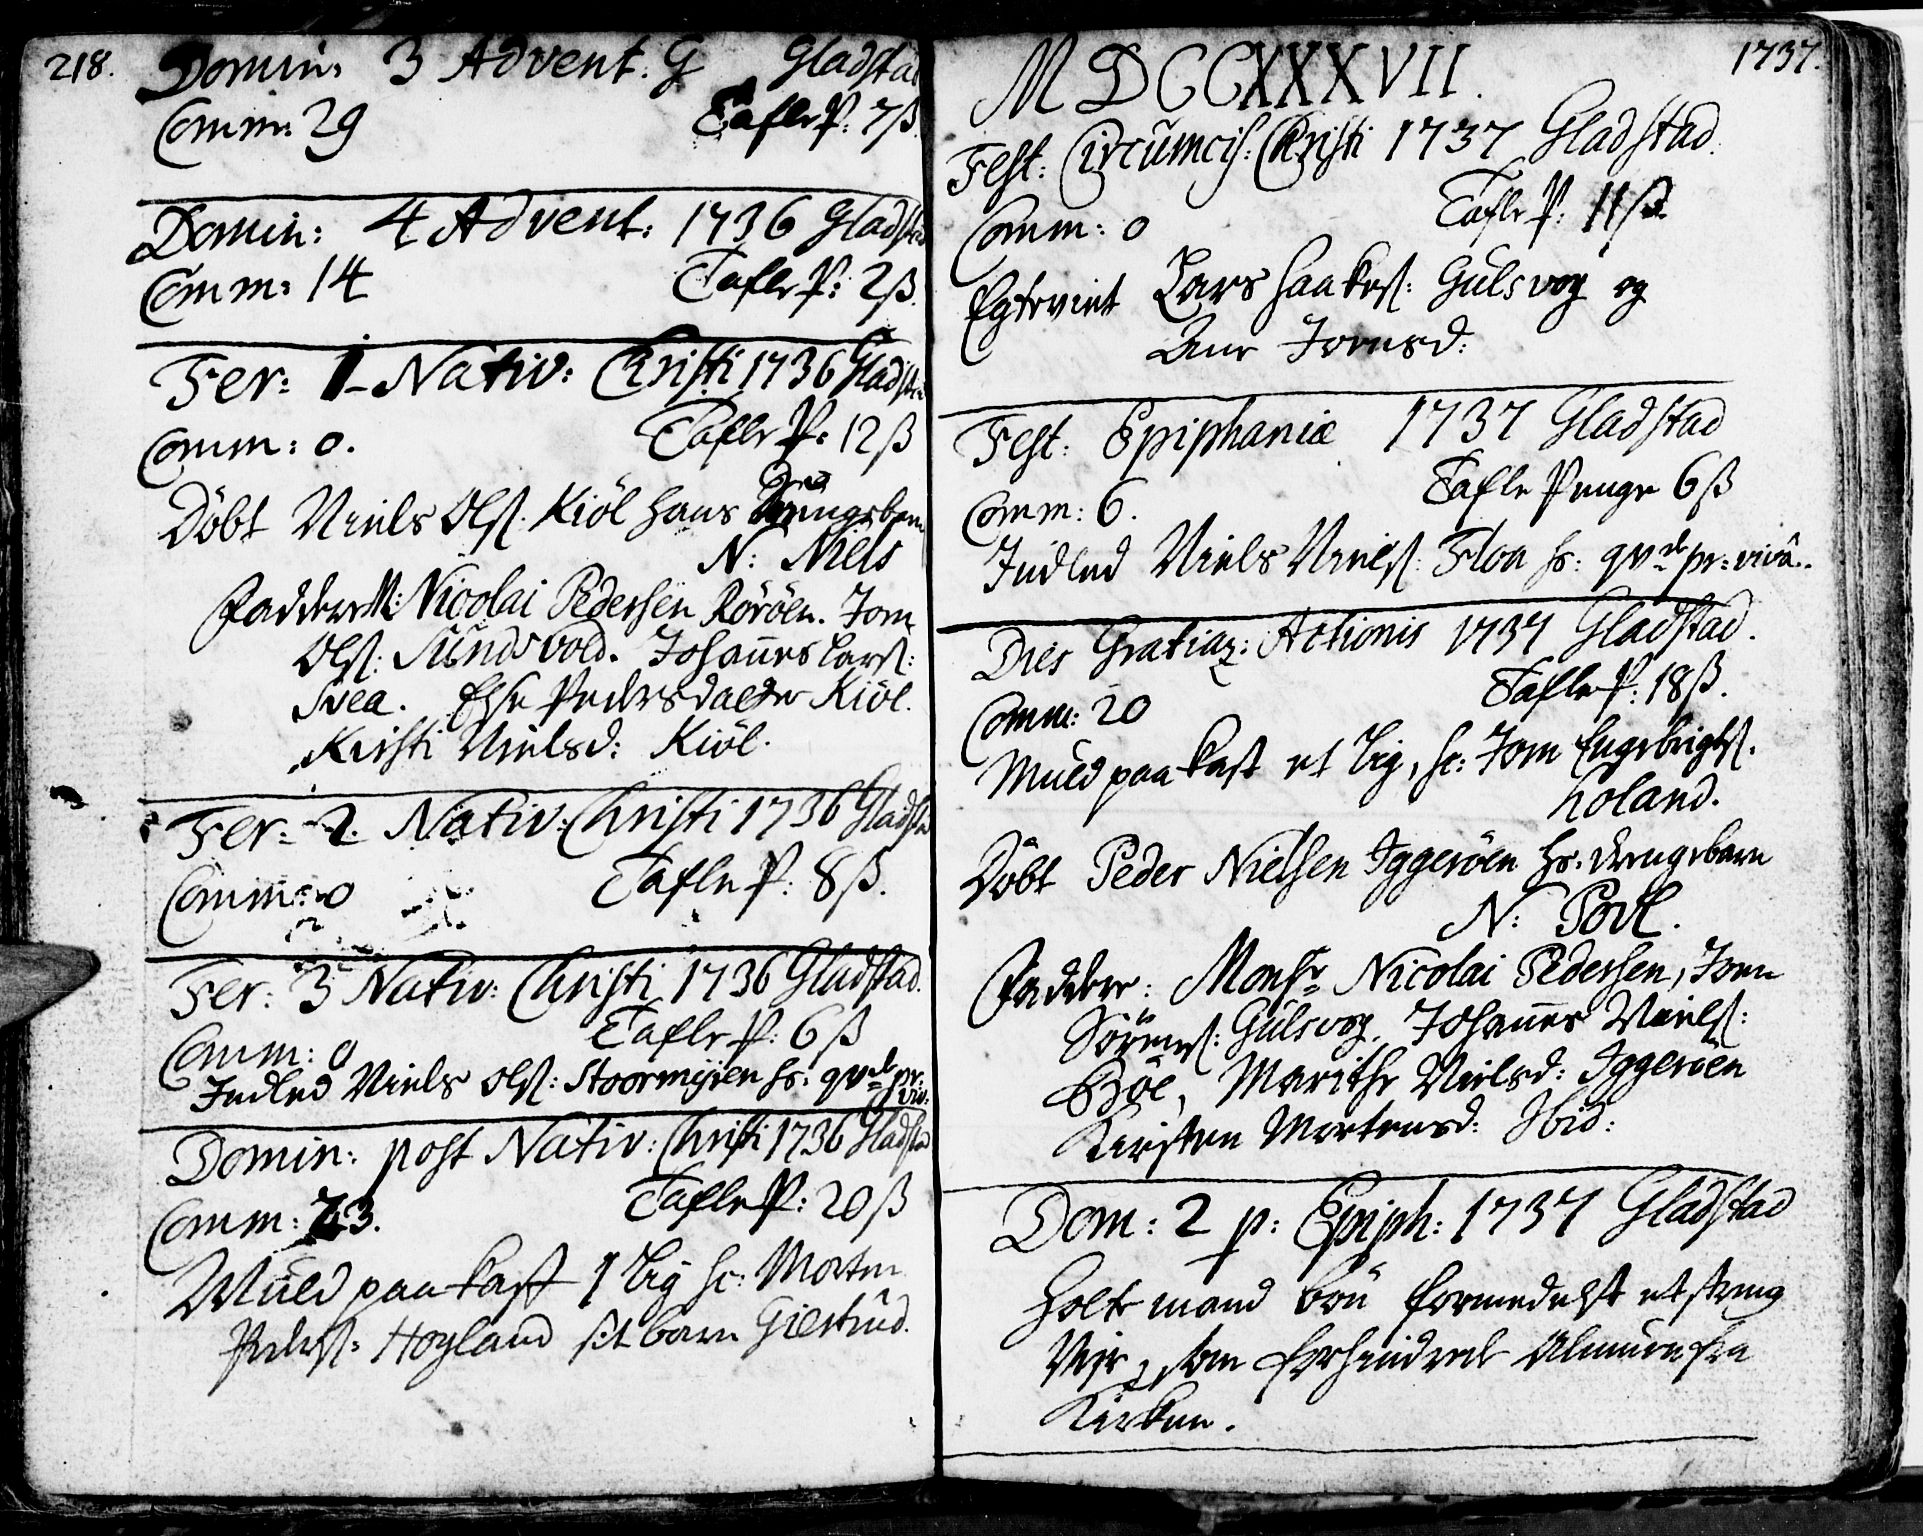 218.
Domin: 3 Advent: G Gladstad
Comm: 29 Tafle P: 7 ß.
Domin: 4 Advent: 1736 Gladstad
Comm: 14 Tafle P: 2 ß.
Fer: 1 Nativ: Christi 1736 Gladstad
Comm: 0. Tafle P: 12 ß
Döbt Niels Ols: Kiöl hans Drengebarn
N: Niels
Faddere M: Nicolai Pedersen Röröen. Jon
Ols: Sundsvold. Johannes Lars:
Svea. Else Pedersdaatter Kiöl.
Kirsti Nielsd: Kiöl.
Fer: 2. Nativ: Christi 1736 Gladstad
Comm: 0 Tafle P: 8 ß.
Fer: 3 Nativ: Christi 1736 Gladstad.
Comm: 0 Tafle P: 6 ß
Indled Niels Ols: Stoormyren hs: qvde pr: viv:
Domin: post Nativ: Christi 1736 Gladstad
Comm: 23. Tafle P: 20 ß
Muld paa kast 1 Lig sc: Morten
Peders: Hoyland sit barn Giertrud.
1737.
MDCCXXXVII.
Fest: Circumcis: Christi 1737 Gladstad.
Comm: 0 Tafle P: 11 ß
Egteviet Lars Haakes: Gulsvog og
Ane Jonsd:
Fest: Epiphaniæ 1737 Gladstad
Comm: 6. Tafle Penge 6 ß
Indled Niels Niels: Floa hs: qvde pr: vivâ.
Dies Gratiar: Actionis 1737 Gladstad.
Comm: 20 Tafle P: 18 ß.
Muld paa kast et Lig, sc: Jon Engebrigts.
Holand.
Döbt Peder Nielsen Iggeröen hs: drengebarn
N: Povl.
Faddere: Monsr Nicolai Pedersen, Jon
Sörens: Gulsvog, Johannes Niels:
Böe, Marithe Nielsd: Iggeröen
Kirsten Mortensd: Ibid:
Dom: 2 p: Epiph: 1737 Gladstad
Holte mand bön formedelst et streng
Veir, som forhindrede Almuen fra
Kirken.